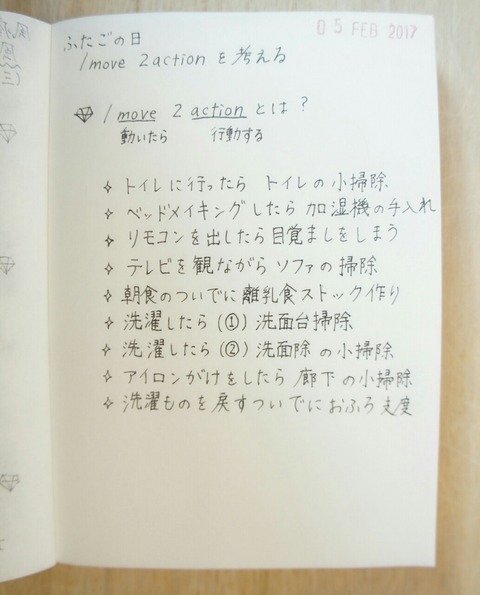 05 FEB 2017
ふたごの日
1move 2action を考える
1 move 2 action とは?
動いたら 行動する
トイレに行ったら トイレの小掃除
ベッドメイキングしたら 加湿機の手入れ
リモコンを出したら目覚ましをしまう
テレビを観ながら ソファの掃除
朝食のついでに離乳食ストック作り
洗濯したら(①)洗面台掃除
洗濯したら(②)洗面除の小掃除
アイロンがけをしたら 廊下の小掃除
洗濯ものを戻すついでにおふろ支度